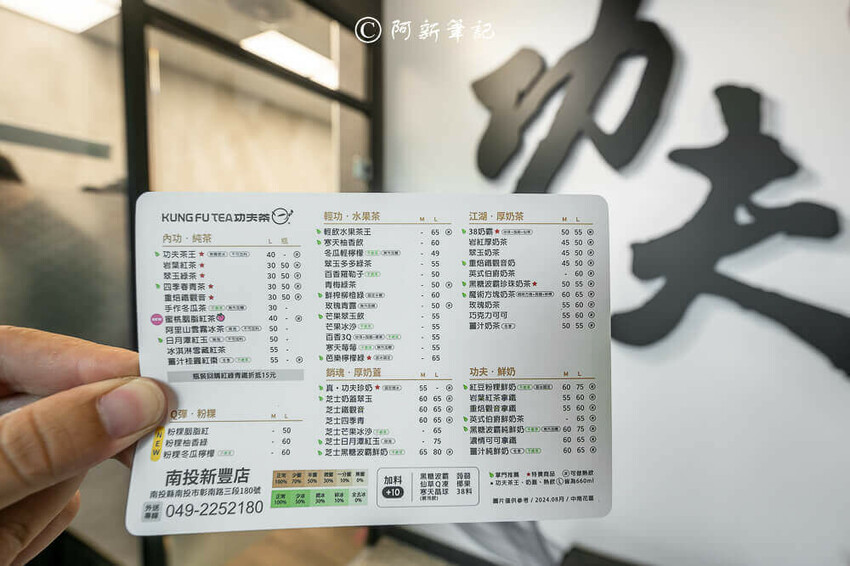 © 阿新筆記
功夫
KUNG FU TEA功夫茶
內功・純茶 L 瓶
功夫茶王 ★ 40 -
岩葉紅茶 ★ 30 50
翠玉綠茶 ★ 30 50
四季春青茶 ★ 30 50
重焙鐵觀音 ★ 30 50
手作冬瓜茶 50 -
蜜桃胭脂紅茶 40 -
阿里山雲霧冰茶 50 -
日月潭紅玉 50 -
冰淇淋雪藏紅茶 55 -
薑汁桂圓紅棗 55 -
瓶裝回購紅綠青鐵折抵15元
Q彈・粉粿 M L
NEW
粉粿胭脂紅 - 50
粉粿柚香綠 - 60
粉粿冬瓜檸檬 - 60
輕功・水果茶 M L
輕飲水果茶王 - 65
寒天柚香飲 - 60
冬瓜輕檸檬 - 49
翠玉多多綠茶 - 55
百香羅勒子 - 50
青梅綠茶 - 50
鮮搾柳橙綠 - 60
玫瑰青露 - 50
芒果翠玉飲 - 55
芒果冰沙 - 55
百香3Q - 55
寒天莓莓 - 55
芭樂檸檬綠 ★ - 60
銷魂・厚奶蓋 M L
真・功夫珍奶 ★ 55 -
芝士奶蓋翠玉 60 65
芝士鐵觀音 60 65
芝士四季青 60 65
芝士芒果冰沙 - 65
芝士日月潭紅玉 - 65
芝士黑糖波霸鮮奶 65 80
江湖・厚奶茶 M L
38奶霸 ★ 50 55
岩紅厚奶茶 45 50
翠玉奶茶 45 50
重焙鐵觀音奶 45 50
英式伯爵奶茶 - 60
黑糖波霸珍珠奶茶 ★ 50 55
魔術方塊奶茶 60 65
玫瑰奶茶 55 60
巧克力可可 55 60
薑汁奶茶 50 55
功夫・鮮奶 M L
紅豆粉粿鮮奶 60 75
岩葉紅茶拿鐵 55 60
重焙觀音拿鐵 55 60
英式伯爵鮮奶茶 - 65
黑糖波霸純鮮奶 60 75
濃情可可拿鐵 60 65
薑汁純鮮奶 60 65
南投新豐店
南投縣南投市彰南路三段180號
外送專線 049-2252180
正常 少糖 半糖 微糖 一分糖 無糖
100% 70% 50% 30% 10% 0%
正常 少冰 微冰 碎冰 完全去冰
100% 50% 30% 10% 0%
加料 +10
黑糖波霸 蒟蒻
仙草Q凍 椰果
寒天晶球 38料
掌門推薦 ★特價商品 可做熱飲
功夫茶王、奶蓋、熱飲 L 皆為660ml
圖片僅供參考 / 2024.08月 / 中南花區